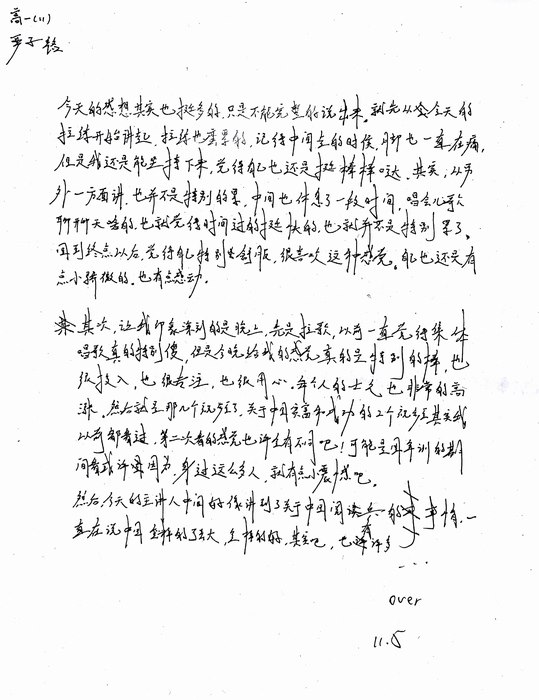 高一(11)
今天的感想其实也挺多的,只是不能完整的说出来。就先从今天的
拉练开始讲起,拉练也蛮累的,记得中间走的时候,脚也一直在痛,
但是我还是能坚持下来,觉得自己也还是挺棒棒哒,其实,从另
外一方面讲,也并不是特别的累,中间也休息了一段时间,唱会儿歌
聊聊天啥的,也就觉得时间过的挺快的,也就并不是特别累了。
回到终点以后,觉得自己特别的舒服,很喜欢这种感觉。自己也还是有
点小骄傲的,也有点感动。
其次,让我印象深刻的是晚上,先是拉歌,以前一直觉得集体
唱歌真的特别傻,但是今晚给我的感觉真的是特别的棒,也
很投入,也很专注,也很用心。每个人的士气也非常的高
涨,然后就是那几个视频了,关于中国 和成功的2个视频其实我
以前都看过,第二次看的感觉也许会有不同吧!可能是因军训的期
间看或许因为,身边这么多人,就有点小震撼吧。
然后,今天的主讲人中间好像讲到了关于中国阅兵的事情,一
直在说中国怎样的强大,怎样的好,其实吧,也有许多
...
over
11.5